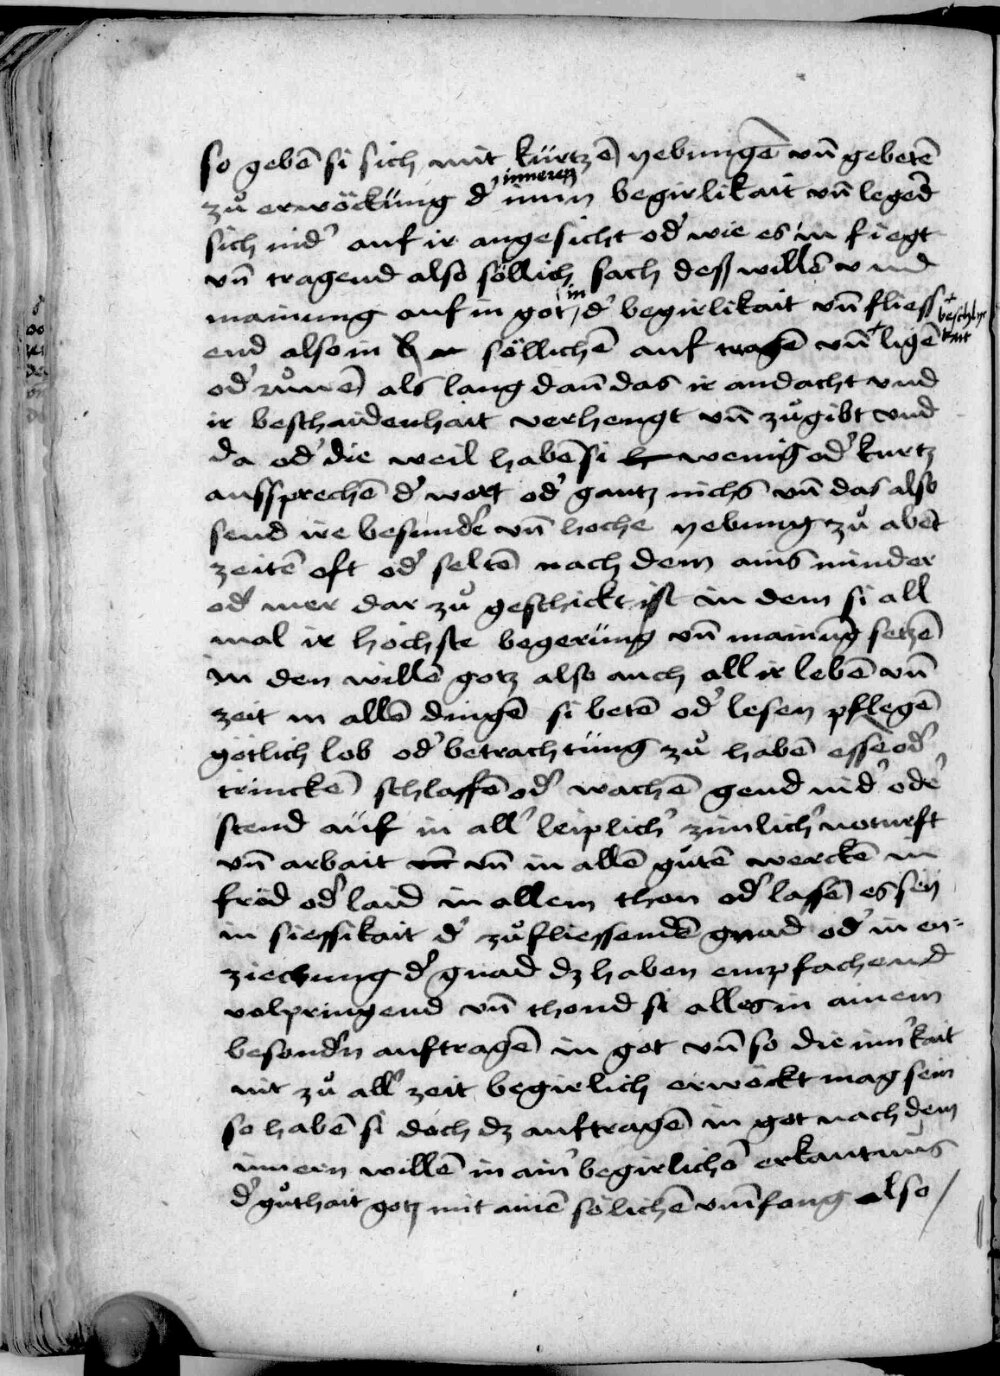 so gebē si sich mit kürtzē yebungē vn̄ gebetē
zů erwöckūng d' innerē inn begirlikait vn̄ legēd
sich nid' auf ir angesicht od' wie es in fiegt
vn̄ tragend also söllich sach deß willē vnd
mainung auf in got in d' begirlikait vn̄ fliess
end also in söllichē auf tragē vn̄ ligē
od' růwē als lang dan̄ das ir andacht vnd
ir beschaidenhait verhengt vn̄ zůgibt vnd
da od' die weil habē si wenig od' kurtz
aussprechē d' wort od' gantz nichs vn̄ das also
send ire besundē vn̄ hoche yebung zů abēt
zeitē oft od' seltē nach dem ains minder
od' mer dar zů geschickt ist in dem si all
mal ir höchste begerūng vn̄ mainūng setzē
in den willē gotz also auch all ir lebē vn̄
zeit in allē dingē si betē od' lesen pflegē
götlich lob od' betrachtūng zů habē essē od'
trinckē schlaffē od' wachē gend nid' ode'
stend aūf in all' leiplich' zimlich' noturft
vn̄ arbait vn̄ in allē gůtē werckē in
fröd od' laid in allem thon od' lassē es sey
in siessikait d' zůfliessendē gnad od' in en-
ziechung d' gnad dz haben empfachend
volpringend vn̄ thond si alles in ainem
besond'n auftragē in got vn̄ so die inn'kait
nit zů all' zeit begirlich erwöckt mag sein
so habē si doch dz auftragē in got nach dem
innern willē in ain' begirlichē erkantnus
d' gůthait gotz mit ainē sölichē vmfang also /